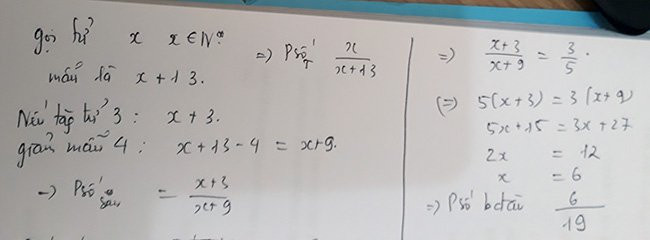 gọi tử x x ∈ N* => Psố T x/(x+13)
mẫu là x + 13.
Nếu tăng tử 3 : x + 3.
giảm mẫu 4 : x + 13 - 4 = x+9.
-> Psố sau = (x+3)/(x+9)
=> (x+3)/(x+9) = 3/5.
(=) 5(x+3) = 3(x+9)
5x+15 = 3x+27
2x = 12
x = 6
=> Psố b đầu 6/19